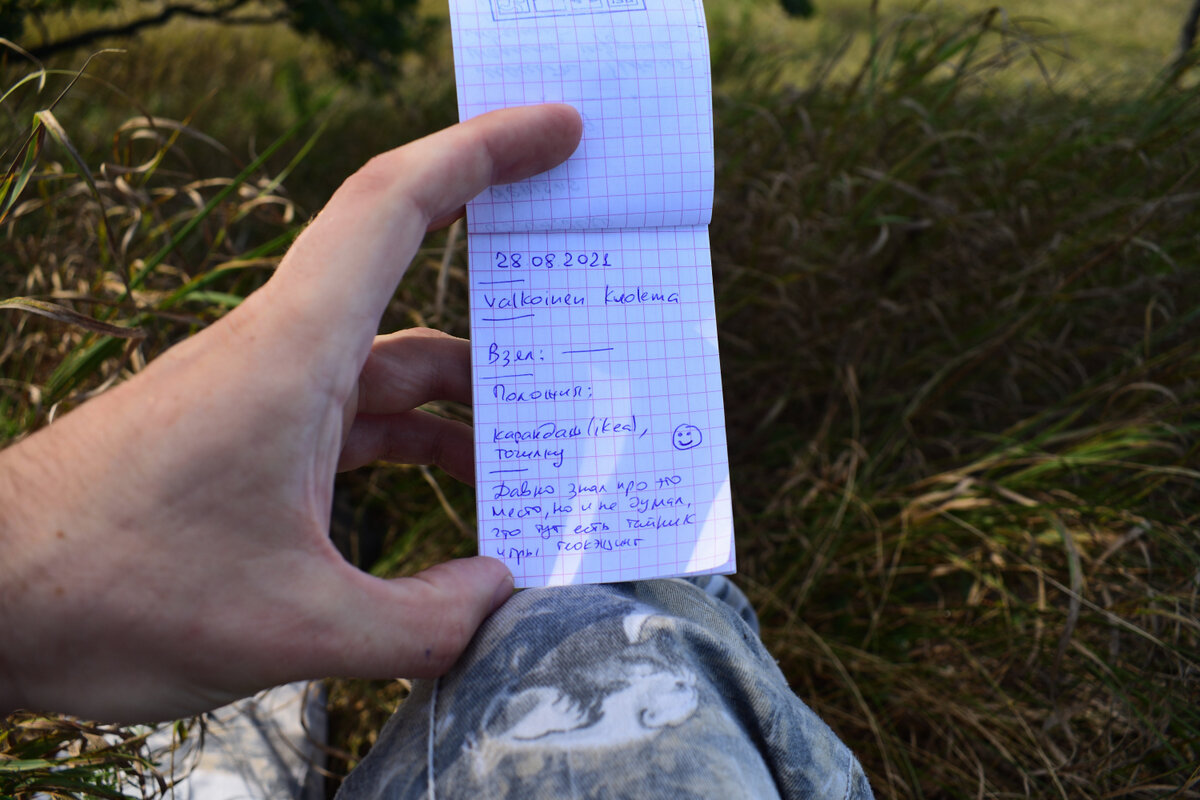 28 08 2021
Valkoinen Kuolema
Взял: —
Положил:
карандаш (ikea),
точилку
Давно знал про это
место, но и не думал,
что тут есть тайник
игры геокэшинг